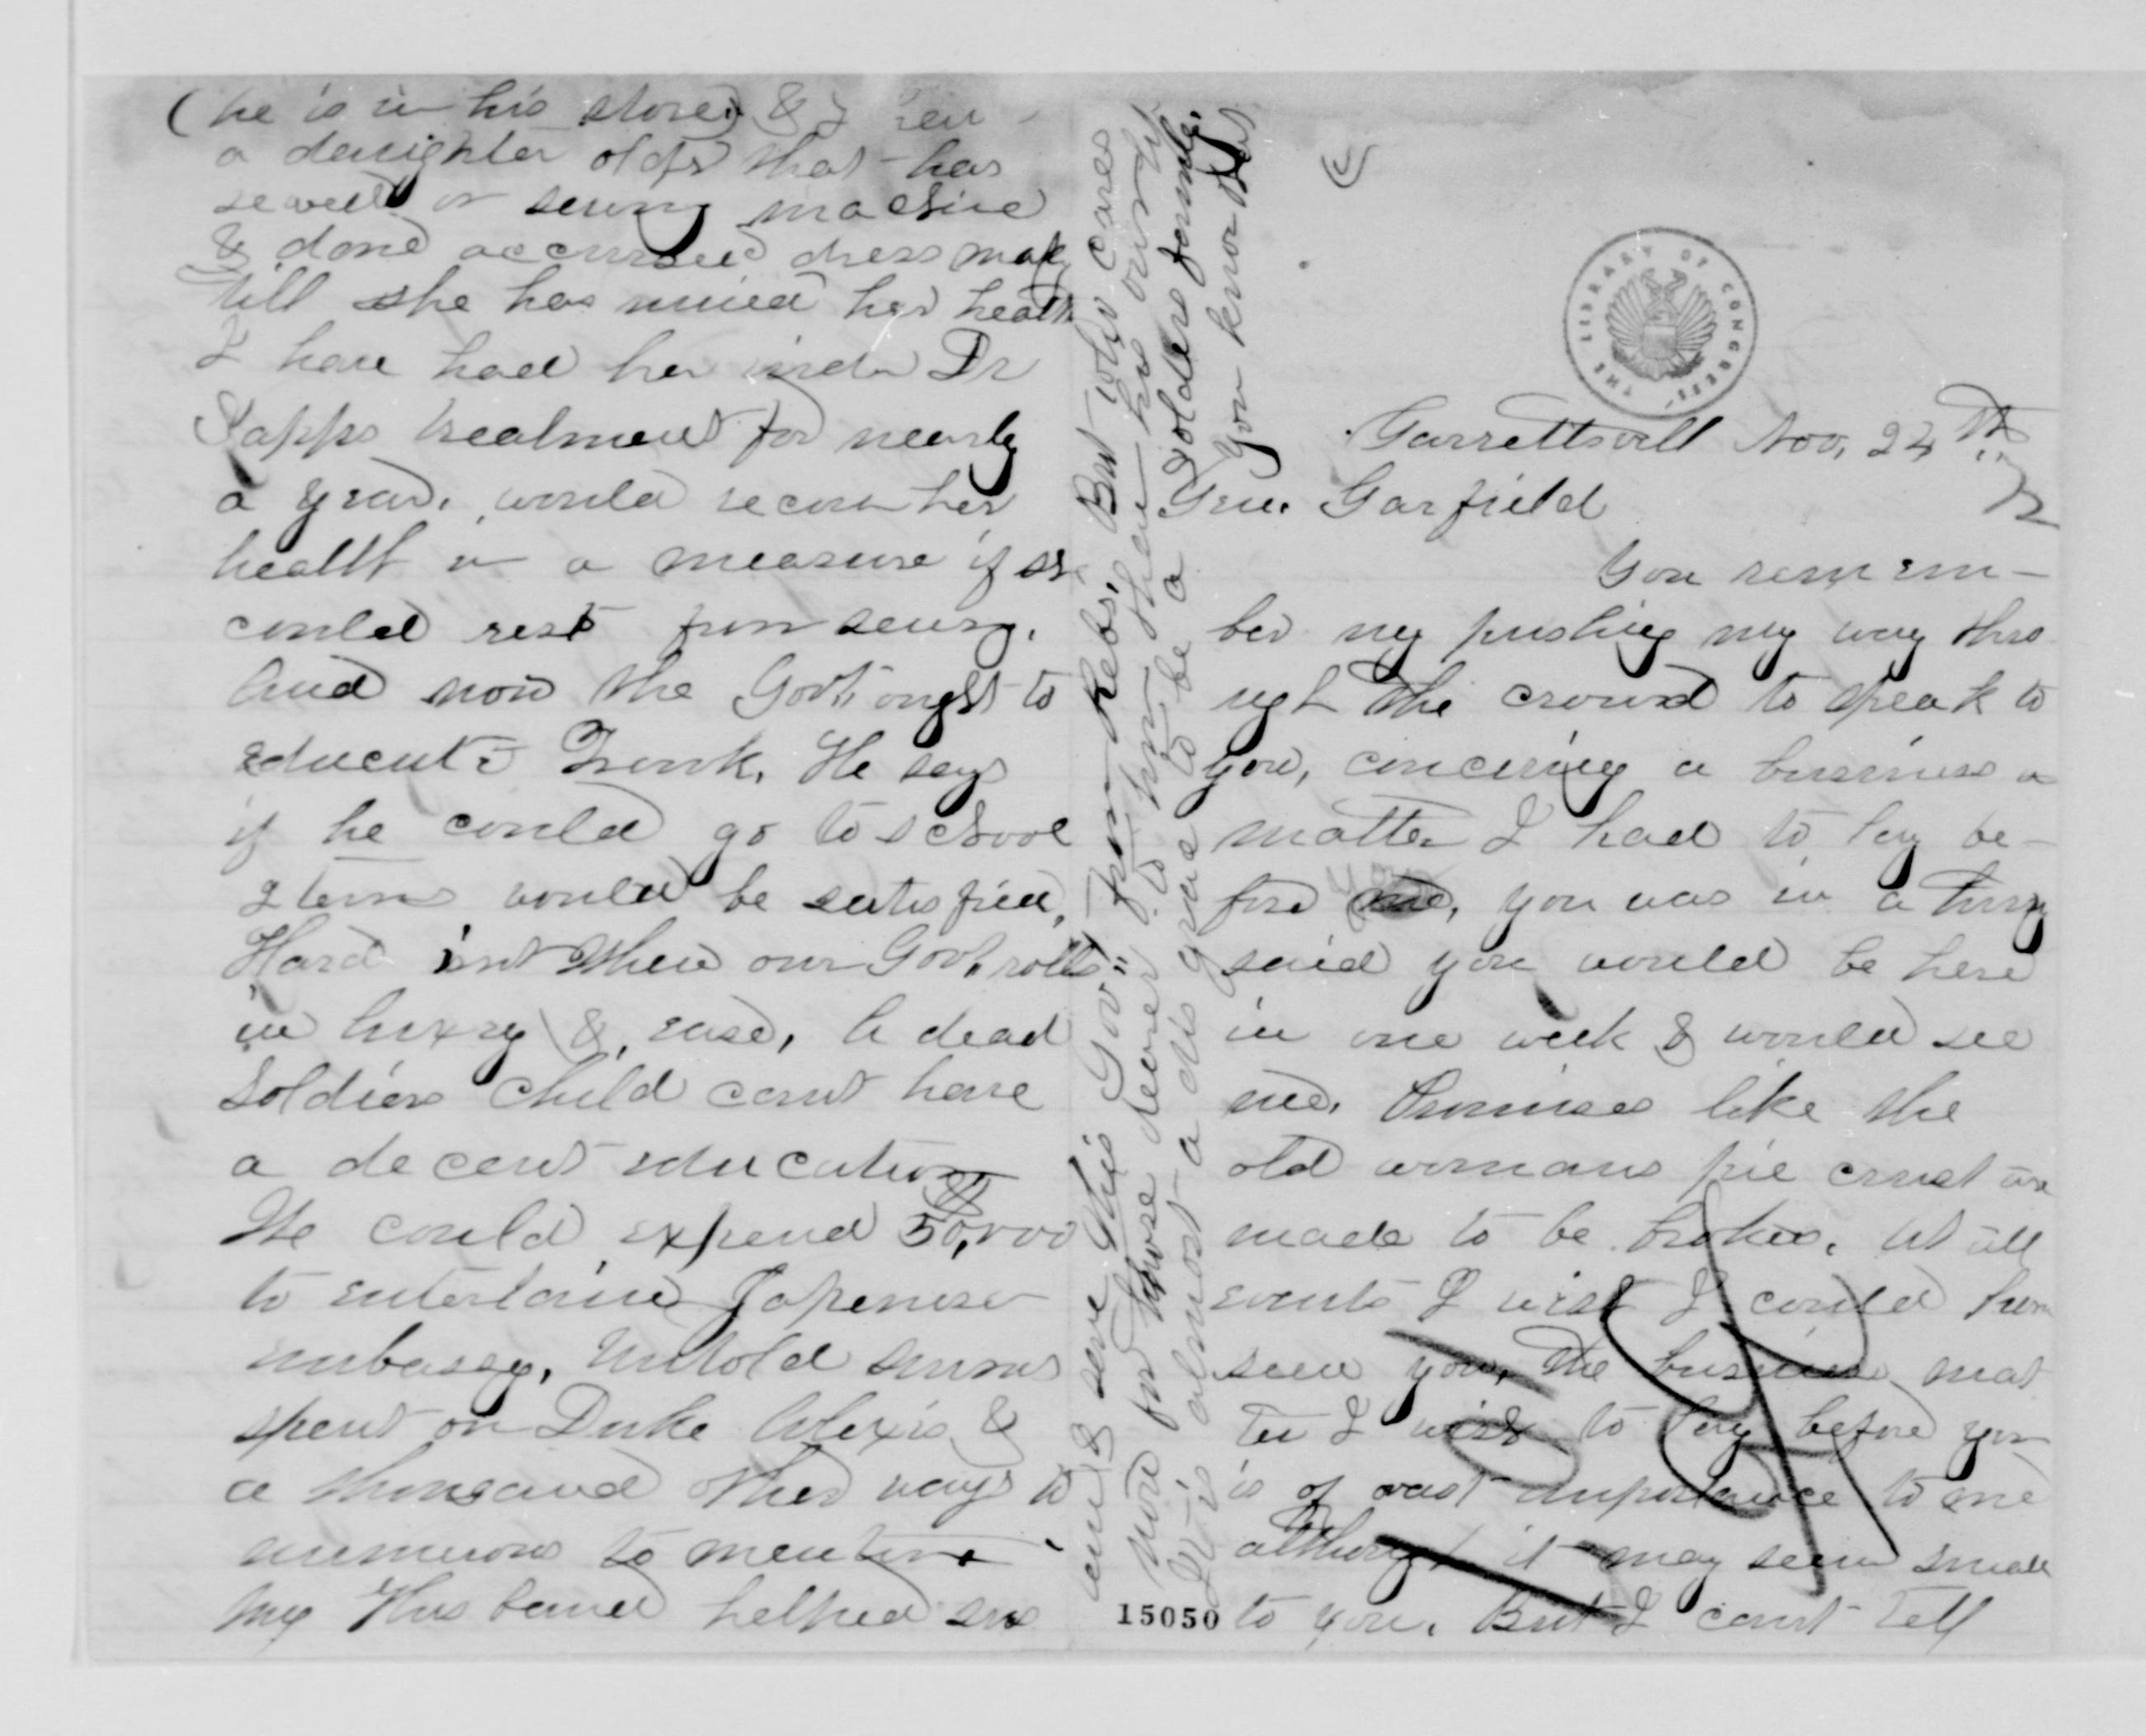 Garrettsvill Nov, 24th
72
Gen. Garfield
You remem-
ber my pushing my way thro
ugh the crowd to speak to
you, concering a business a
matter I had to lay be-
fore you, you was in a hurry
said you would be here
in one week & would see
me. Promises like the
old womans pie crust are
made to be broken. At all
events I wish I could have
seen you, the business mat
ter I wish to lay before you
is of vast importance to me
although it may seem small
to you. But I cant tell
15050
(he is in his store) & I
a daughter older that has
sewed on sewing machine
& done accursed dress mak
till she has ruined her health
I have had her under Dr
Sapps treatment for nearly
a year. would recover her
health in a measure if she
could rest from sewing.
And now the Govt ought to
educate Frank. He says
if he could go to school
2 terms would be satisfied,
Hard isnt when our Govt rolls
in luxry & ease, A dead
soldiers child cant have
a decent education
We could expend 50,000
to entertaine Japenese
embassy, Untold sums
spent on Duke Alexis &
a thousand other ways to
numerous to mention
My Husband helped sav
& serve this Gov" from Rebs. But who cares
more for those dearer to him then his own life
It is almost a disgrace to be a soldiers family.
You know
THE LIBRARY OF CONGRESS